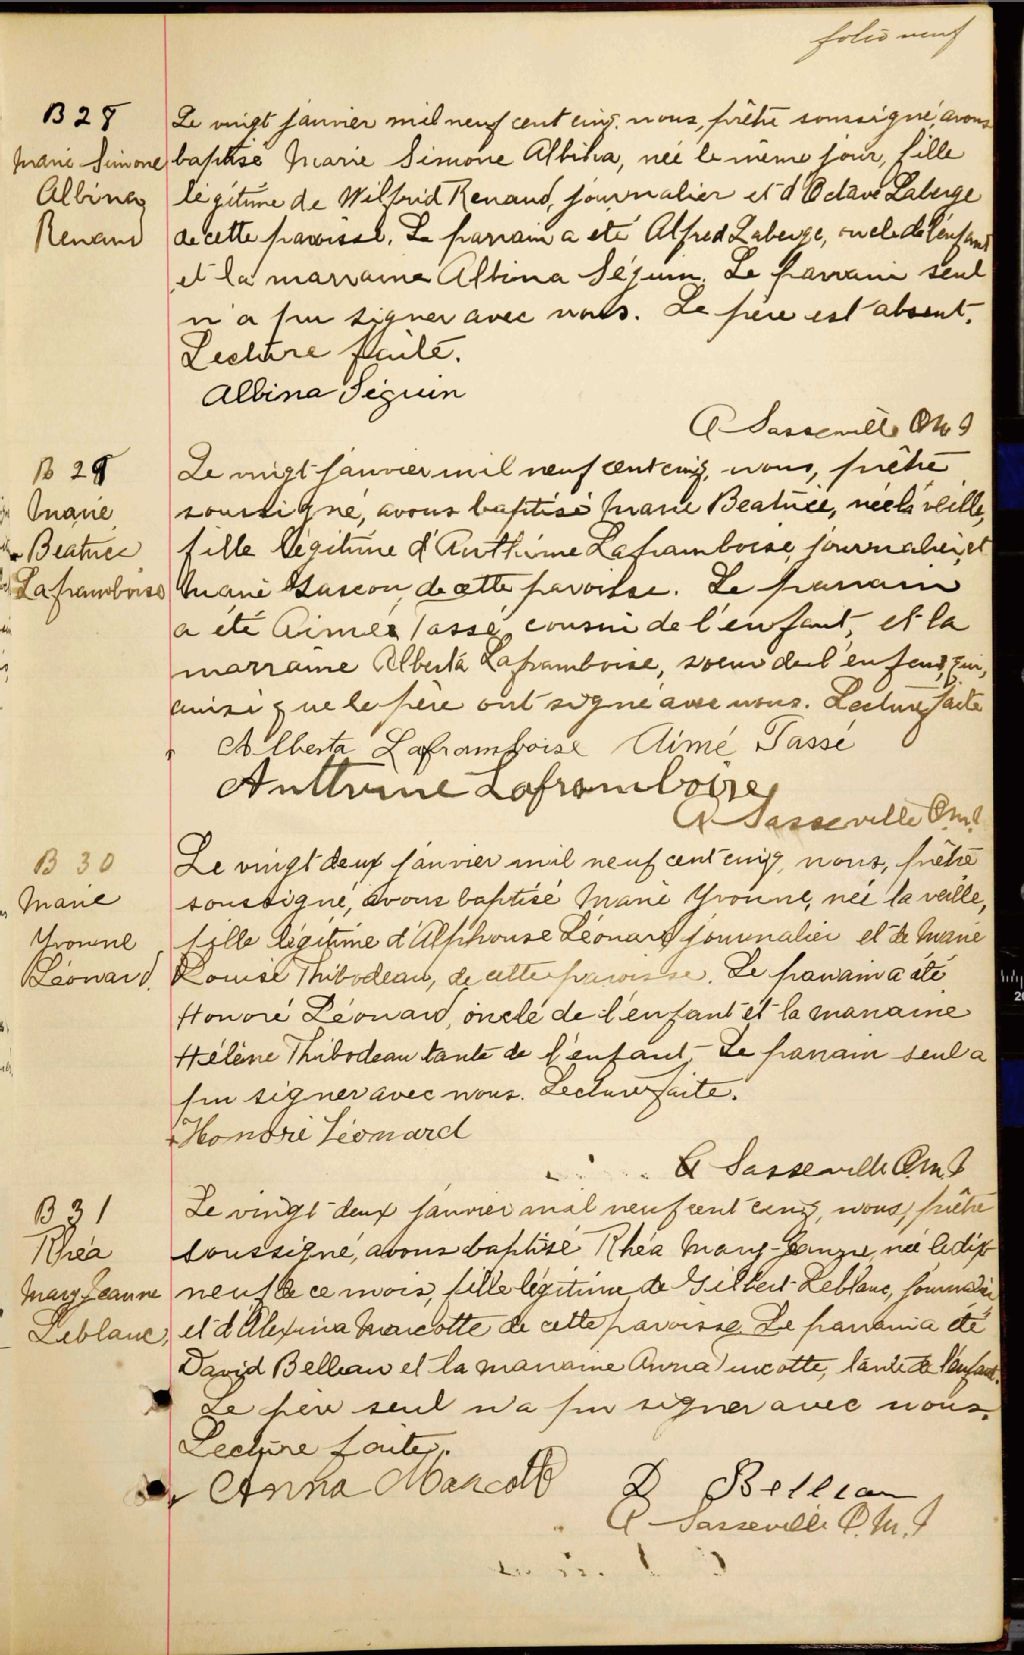 folio neuf
B 28
Marie Simone
Albina
Renaud
Le vingt janvier mil neuf cent cinq, nous, prêtre soussigné avons
baptisé Marie Simone Albina, née le même jour, fille
légitime de Wilfrid Renaud, journalier et d'Octavé Laberge
de cette paroisse. Le parrain a été Alfred Laberge, oncle de l'enfant
et la marraine Albina Séguin. Le parrain seul
n'a pu signer avec nous. Le père est absent.
Lecture faite.
Albina Séguin
A Sasseville O M I
B 29
Marie
Beatrice
Laframboise
Le vingt janvier mil neuf cent cinq, nous, prêtre
soussigné, avons baptisé Marie Beatrice, née la veille,
fille légitime d'Anthime Laframboise, journalier, et
Marie Gascon, de cette paroisse. Le parrain
a été Aimé Tassé, cousin de l'enfant, et la
marraine Alberta Laframboise, soeur de l'enfant, qui,
ainsi que le père ont signé avec nous. Lecture faite
Alberta Laframboise Aimé Tassé
Anthime Laframboise
A Sasseville O.M.I.
B 30
Marie
Yvonne
Léonard.
Le vingt deux janvier mil neuf cent cinq, nous, prêtre
soussigné, avons baptisé Marie Yvonne, née la veille,
fille légitime d'Alphonse Léonard journalier et de Marie
Louise Thibodeau, de cette paroisse. Le parrain a été
Honoré Léonard, oncle de l'enfant et la marraine
Hélène Thibodeau tante de l'enfant. Le parrain seul a
pu signer avec nous. Lecture faite.
Honoré Léonard
A Sasseville O.M.I
B 31
Rhéa
Mary Jeanne
Leblanc,
Le vingt-deux janvier mil neuf cent cinq, nous, prêtre
soussigné, avons baptisé Rhéa Mary-Jeanne, née le dix
neuf de ce mois, fille légitime de Gilbert Leblanc, journalier
et d'Alexina Marcotte de cette paroisse. Le parrain a été
David Belleau et la marraine Anna Turcotte, tante de l'enfant.
Le père seul n'a pu signer avec nous.
Lecture faite.
Anna Marcotte D Belleau
A Sasseville O.M.I